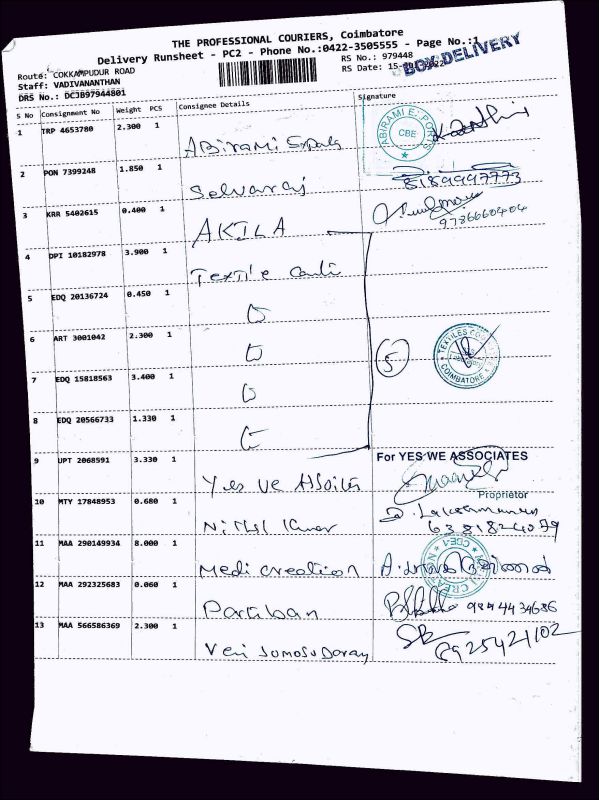 THE PROFESSIONAL COURIERS, Coimbatore
Delivery Runsheet - PC2 - Phone No.:0422-3505555 - Page No.:1
Route: COKKAMPUDUR ROAD
RS No.: 979448
BOX DELIVERY
Staff: VADIVANANTHAN
RS Date: 15-
DRS No.: DCJB97944801
S No Consignment No Weight PCS Consignee Details Signature
1 TRP 4653780 2.300 1 Abirami Exports
ABIRAMI E PORTS CBE
2 PON 7399248 1.850 1 Selvaraj 8189997773
3 KRR 5402615 0.400 1 AKILA 9786660404
4 DPI 10182978 3.900 1 Textile
5 EDQ 20136724 0.450 1
6 ART 3001042 2.300 1 5
TEXTILES COIMBATORE
7 EDQ 15818563 3.400 1
8 EDQ 20566733 1.330 1
9 UPT 2068591 3.330 1 Yes We
For YES WE ASSOCIATES
Proprietor
10 MTY 17848953 0.680 1 Nithil Kumar 6381824079
11 MAA 290149934 8.000 1 Medi creation
12 MAA 292325683 0.060 1 Partiban
13 MAA 566586369 2.300 1 8925421102